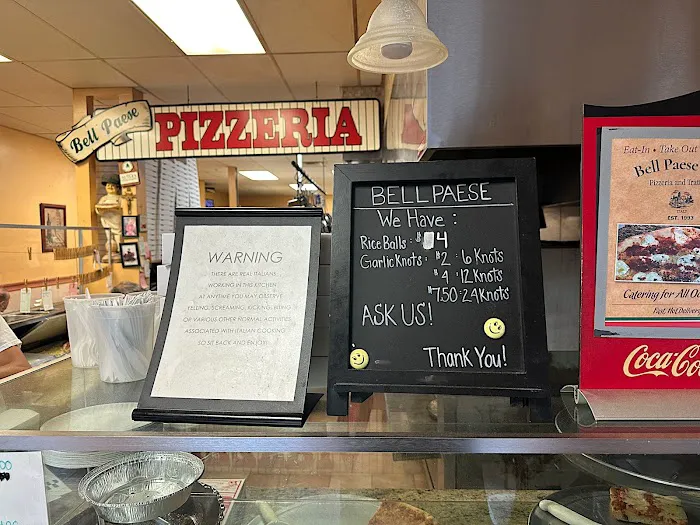 Bell Paese
PIZZERIA
WARNING
THERE ARE REAL ITALIANS
WORKING IN THIS KITCHEN
AT ANYTIME YOU MAY OBSERVE
YELLING, SCREAMING, KICKING, BITING
OR VARIOUS OTHER NORMAL ACTIVITIES
ASSOCIATED WITH ITALIAN COOKING
SO SIT BACK AND ENJOY!
BELL PAESE
We Have :
Rice Balls : $4
Garlic Knots : $2 : 6 Knots
$4 : 12 Knots
$7.50 : 24 Knots
ASK US!
Thank You!
Eat-In • Take Out
Bell Paese
Pizzeria and
EST. 1993
Catering for All O
Fast, Hot Delivery
Coca-Co